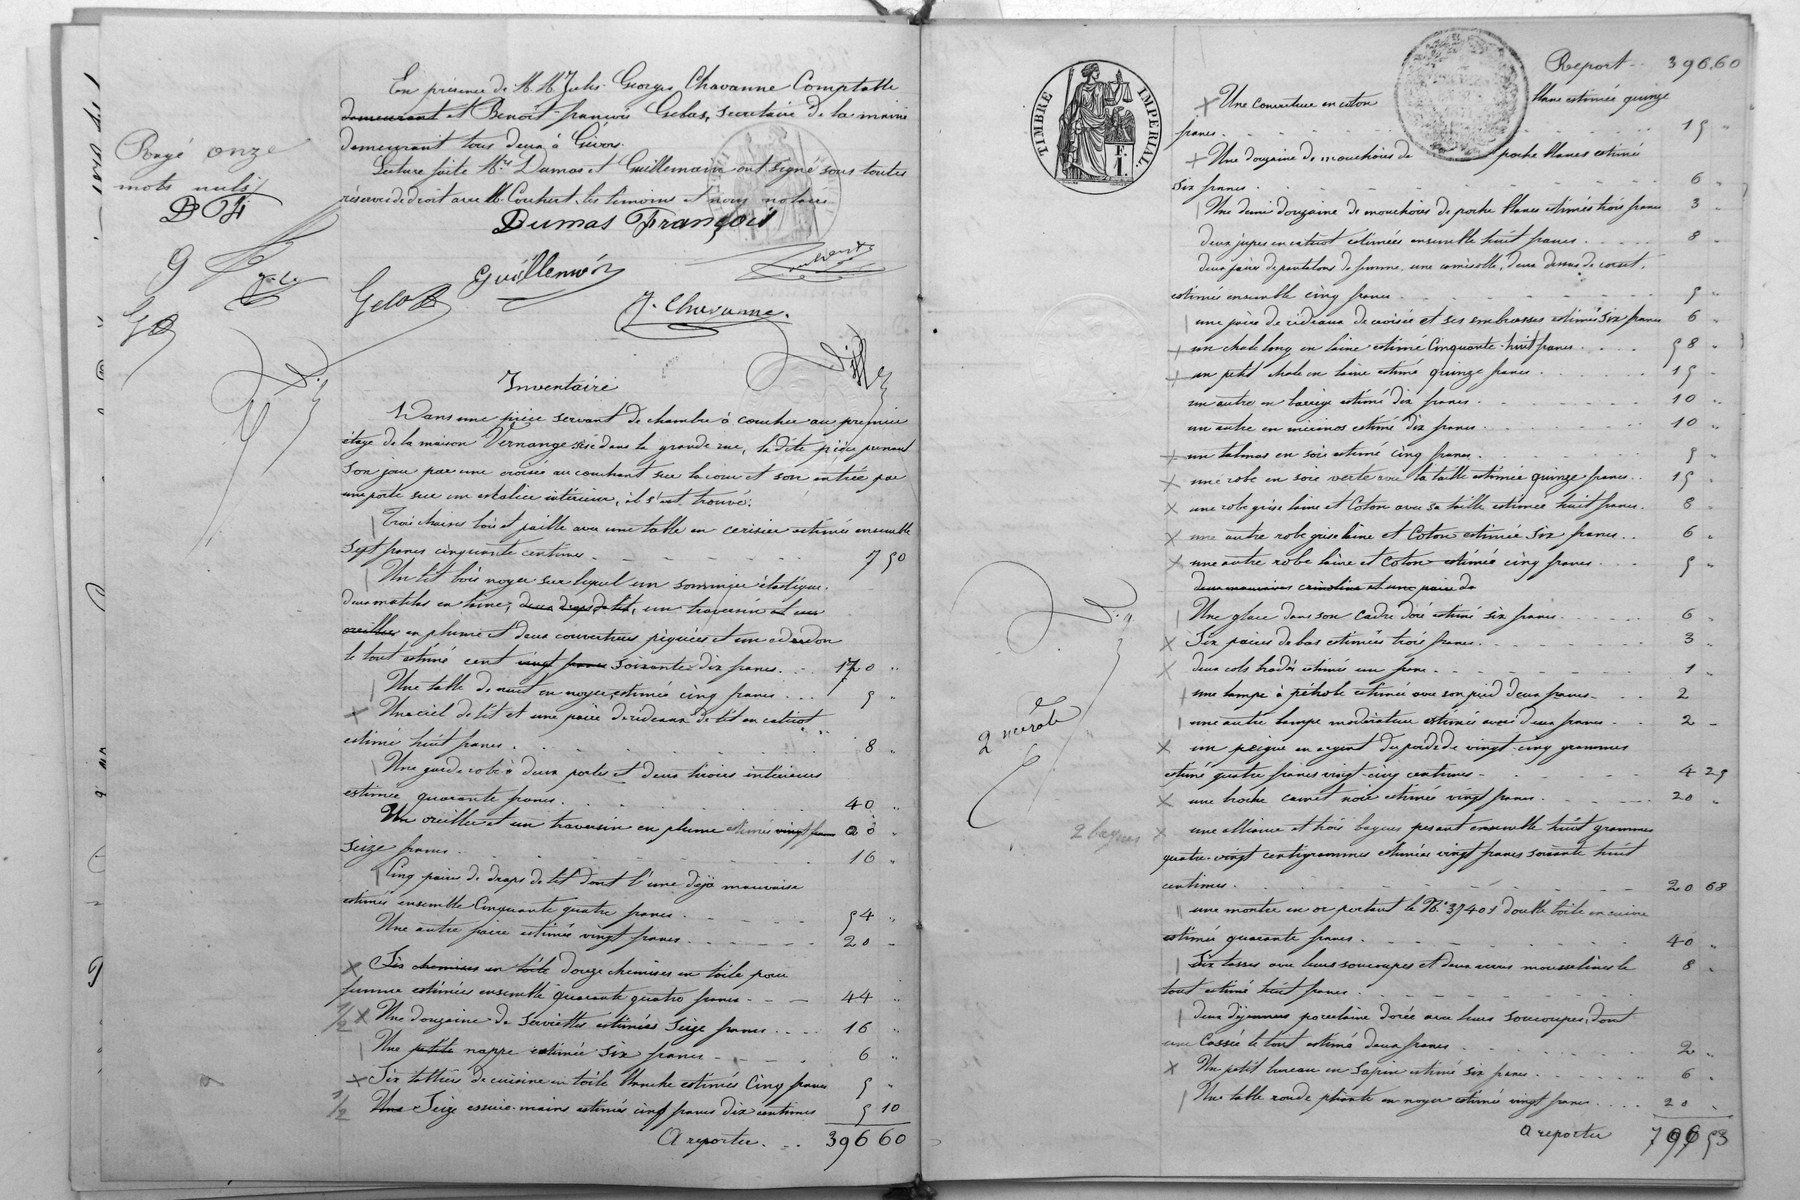 En présence de M.M. Jules Georges Chavanne Comptable
demeurant et Benoît françois Gebas, secrétaire de la mairie
demeurant tous deux à Givors.
Lecture faite Mrs Dumas et Guillemain ont signé sous toutes
réserves de droit avec M. Couhert, les témoins et nous notaire
Rayé onze
mots nuls
D F
Dumas François
Guillemin
J. Chavanne
Inventaire
Dans une pièce servant de chambre à coucher au premier
étage de la maison Vernange sise dans la grande rue, la dite pièce prenant
son jour par une croisée au couchant sur la cour et son entrée par
une porte sur un escalier intérieur, il s'est trouvé:
Trois chaises bois et paille avec une table en cerisier estimées ensemble
sept francs cinquante centimes 7 50
Un lit bois noyer sur lequel un sommier élastique
deux matelas en laine, deux draps de lit, un traversin et un
oreiller en plume et deux couvertures piquées et un edredon
le tout estimé cent vingt francs soixante-dix francs 170 "
Une table de nuit en noyer estimée cinq francs 5 "
Un ciel de lit et une paire de rideaux de lit en catirot
estimé huit francs 8 "
Une garde robe à deux portes et deux tiroirs intérieurs
estimée quarante francs 40 "
Un oreiller et un traversin en plume estimés vingt francs 20 "
Seize francs 16 "
Cinq paires de draps de lit dont l'une déjà mauvaise
estimées ensemble cinquante quatre francs 54 "
Une autre paire estimée vingt francs 20 -
Six chemises en toile douze chemises en toile pour
femme estimées ensemble quarante quatre francs 44 "
1/2 Une douzaine de serviettes estimées seize francs 16 "
Une petite nappe estimée six francs 6 "
Six tabliers de cuisine en toile blanche estimés cinq francs 5 "
1/2 Une Seize essuie-mains estimés cinq francs dix centimes 5 10
A reporter 396 60
TIMBRE IMPERIAL.
F. 1.
Report 396.60
Une couverture en coton blanc estimée quinze
francs 15 "
Une douzaine de mouchoirs de poche blancs estimés
six francs 6 "
Une demi douzaine de mouchoirs de poche blancs estimés trois francs 3 "
deux jupes en catirot estimées ensemble huit francs 8 "
deux paires de pantalons de femme, une camisolle, deux dessus de corset,
estimés ensemble cinq francs 5 "
une paire de rideaux de croisée et ses embrasses estimés six francs 6 "
un chale long en laine estimé cinquante-huit francs 58 "
un petit chale en laine estimé quinze francs 15 "
un autre en barège estimé dix francs 10 "
un autre en mérinos estimé dix francs 10 "
un talmas en soie estimé cinq francs 5 "
une robe en soie verte avec la taille estimée quinze francs 15 "
une robe grise laine et Coton avec sa taille estimée huit francs 8 "
une autre robe grise laine et Coton estimée six francs 6 "
une autre robe laine et coton estimée cinq francs 5 "
deux mauvaises crinolines et une paire de
Une glace dans son cadre doré estimé six francs 6 "
Six paires de bas estimées trois francs 3 "
deux cols brodés estimés un franc 1 "
une lampe à pétrole estimée avec son pied deux francs 2
une autre lampe modérateur estimée aussi deux francs 2 -
un peigne en argent du poids de vingt-cinq grammes
estimé quatre francs vingt-cinq centimes 4 25
une broche camet noir estimée vingt francs 20 "
2 bagues
une alliance et trois bagues pesant ensemble huit grammes
quatre-vingt centigrammes estimées vingt francs soixante huit
centimes 20 68
une montre en or portant le No. 37401 double boîte en cuivre
estimée quarante francs 40 "
Six tasses avec leurs soucoupes et deux verres mousselines le 8 "
tout estimé huit francs
deux déjeuners porcelaine dorée avec leurs soucoupes, dont
une cassée le tout estimé deux francs 2 "
Un petit bureau en sapin estimé six francs 6 "
Une table ronde pliante en noyer estimée vingt francs 20 "
A reporter 796 53